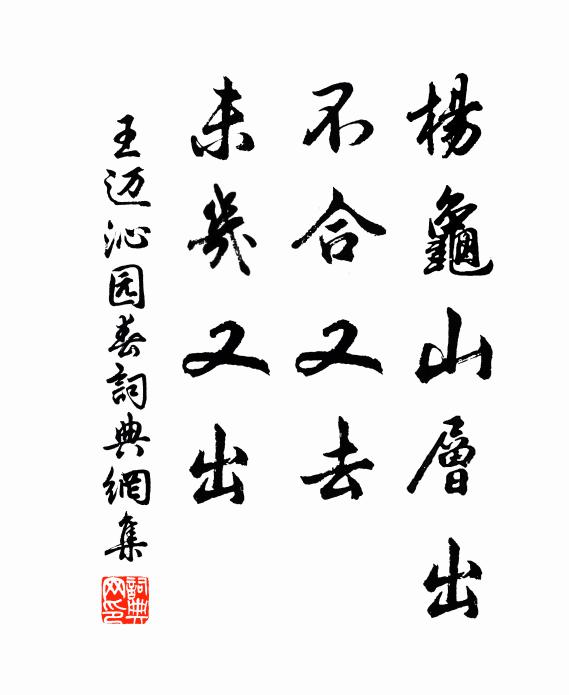 楊龜山層出
不合又去
未幾又出
王迈沁园春詞典網集
詞典网印